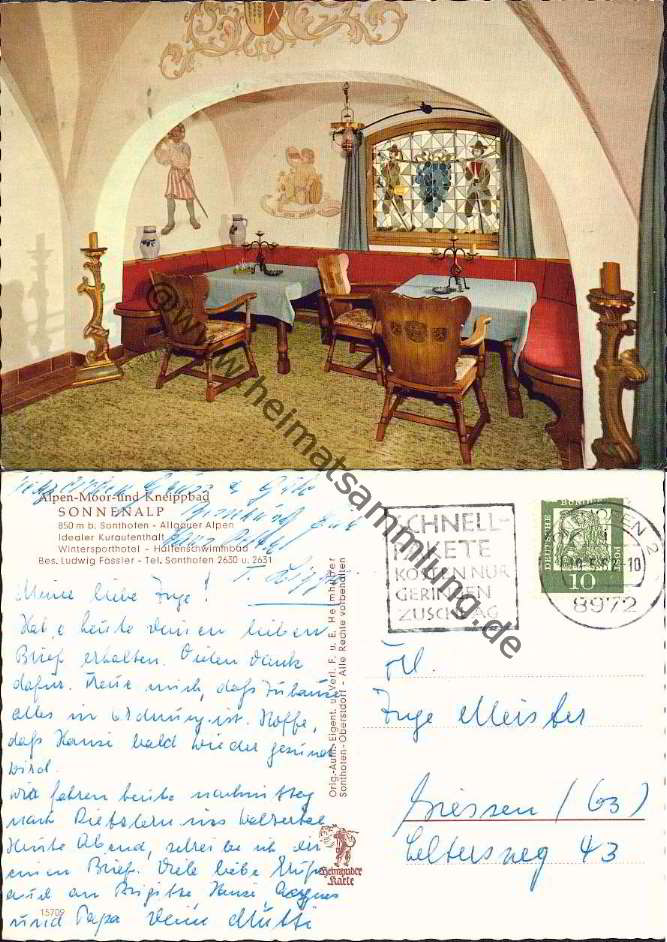 ©www.heimatsammlung.de
Alpen-Moor- und Kneippbad
SONNENALP
850 m b. Sonthofen - Allgäuer Alpen
Idealer Kuraufenthalt
Wintersporthotel - Hallenschwimmbad
Bes. Ludwig Fässler - Tel. Sonthofen 2630 u. 2631
Meine liebe Inge!
Hab heute deinen lieben
Brief erhalten. Vielen Dank
dafür. Freue mich, daß zuhause
alles in Ordnung ist. Hoffe,
daß Hansi bald wieder gesund
wird.
Wir fahren heute nachmittag
nach Riezlern ins
Heute Abend, schreibe ich dir
einen Brief. Viele liebe Grüße
auch an Brigitte Hansi Agnes
und Papa Deine Mutti
15709
Orig.-Aufn. Eigent. u. Verl. F. u. E. Heimhuber
Sonthofen-Oberstdorf - Alle Rechte vorbehalten
Heimhuber
Karte
SCHNELL-
PAKETE
KOSTEN NUR
GERINGEN
ZUSCHLAG
DEUTSCHE
BUNDESPOST
10
8972
Frl.
Inge Meister
Giessen (63)
Seltersweg 43